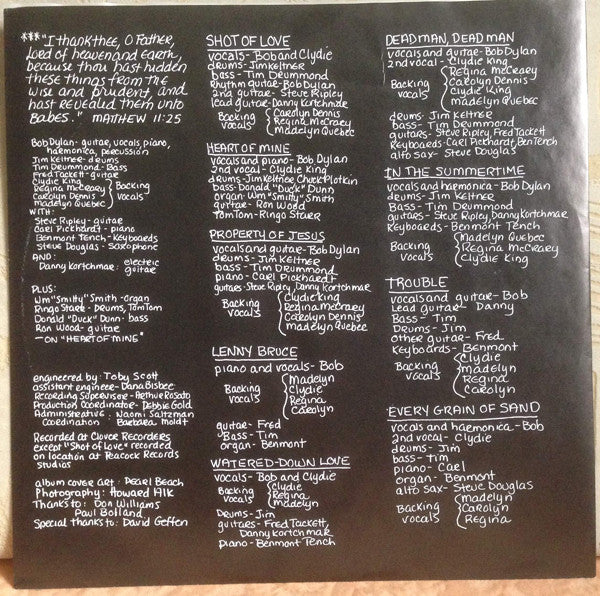 ***"I thank thee, O Father,
Lord of heaven and earth,
because thou hast hidden
these things from the
wise and prudent, and
hast revealed them unto
Babes." MATTHEW 11:25
Bob Dylan - guitar, vocals, piano,
harmonica, percussion
Jim Keltner - drums
Tim Drummond - Bass
Fred Tackett - guitar
Clydie King
Regina McCreary
Carolyn Dennis
Madelyn Quebec
Backing
vocals
WITH:
Steve Ripley - guitar
Carl Pickhardt - piano
Benmont Tench - Keyboards
Steve Douglas - saxophone
AND:
Danny Kortchmar : electric
guitar
PLUS:
Wm "Smitty" Smith - organ
Ringo Starr - Drums, Tom Tom
Donald "Duck" Dunn - bass
Ron Wood - guitar
-ON "HEART OF MINE"
engineered by: Toby Scott
assistant engineer - Dana Bisbee
Recording Supervisor - Arthur Rosato
Production Coordinator - Debbie Gold
Administrative : Naomi Saltzman
Coordination Barbara Moldt
Recorded at Clover Recorders
except "Shot of Love" recorded
on location at Peacock Records
studios
album cover art : Pearl Beach
Photography : Howard Alk
Thanks to : Don Williams
Paul Bofland
Special thanks to : David Geffen
SHOT OF LOVE
vocals - Bob and Clydie
drums - Jim Keltner
bass - Tim Drummond
Rhythm guitar - Bob Dylan
2nd guitar - Steve Ripley
lead guitar - Danny Kortchmar
Backing
vocals
Carolyn Dennis
Regina McCreary
Madelyn Quebec
HEART OF MINE
vocals and piano - Bob Dylan
2nd vocal - Clydie King
drums - Jim Keltner, Chuck Plotkin
bass - Donald "Duck" Dunn
organ - Wm "Smitty" Smith
guitar - Ron Wood
Tom Tom - Ringo Starr
PROPERTY OF JESUS
vocals and guitar - Bob Dylan
drums - Jim Keltner
bass - Tim Drummond
piano - Carl Pickhardt
guitars - Steve Ripley, Danny Kortchmar
Backing
vocals
Clydie King
Regina McCreary
Carolyn Dennis
Madelyn Quebec
LENNY BRUCE
piano and vocals - Bob
Backing
vocals
Madelyn
Clydie
Regina
Carolyn
guitar - Fred
Bass - Tim
organ - Benmont
WATERED-DOWN LOVE
vocals - Bob and Clydie
Backing
vocals
Clydie
Regina
Madelyn
Drums - Jim
guitars - Fred Tackett,
Danny Kortchmar
piano - Benmont Tench
DEAD MAN, DEAD MAN
vocals and guitar - Bob Dylan
2nd vocal - Clydie King
Backing
vocals
Regina McCreary
Carolyn Dennis
Clydie King
Madelyn Quebec
drums - Jim Keltner
bass - Tim Drummond
guitars - Steve Ripley, Fred Tackett
Keyboards - Carl Pickhardt, Ben Tench
alto sax - Steve Douglas
IN THE SUMMERTIME
vocals and harmonica - Bob Dylan
drums - Jim Keltner
bass - Tim Drummond
guitars - Steve Ripley, Danny Kortchmar
Keyboards - Benmont Tench
Backing
vocals
Madelyn Quebec
Regina McCreary
Clydie King
TROUBLE
vocals and guitar - Bob
Lead guitar - Danny
Bass - Tim
Drums - Jim
other guitar - Fred
Keyboards - Benmont
Backing
vocals
Clydie
Madelyn
Regina
Carolyn
EVERY GRAIN OF SAND
vocals and harmonica - Bob
2nd vocal - Clydie
drums - Jim
bass - Tim
piano - Carl
organ - Benmont
alto sax - Steve Douglas
Backing
vocals
Madelyn
Carolyn
Regina